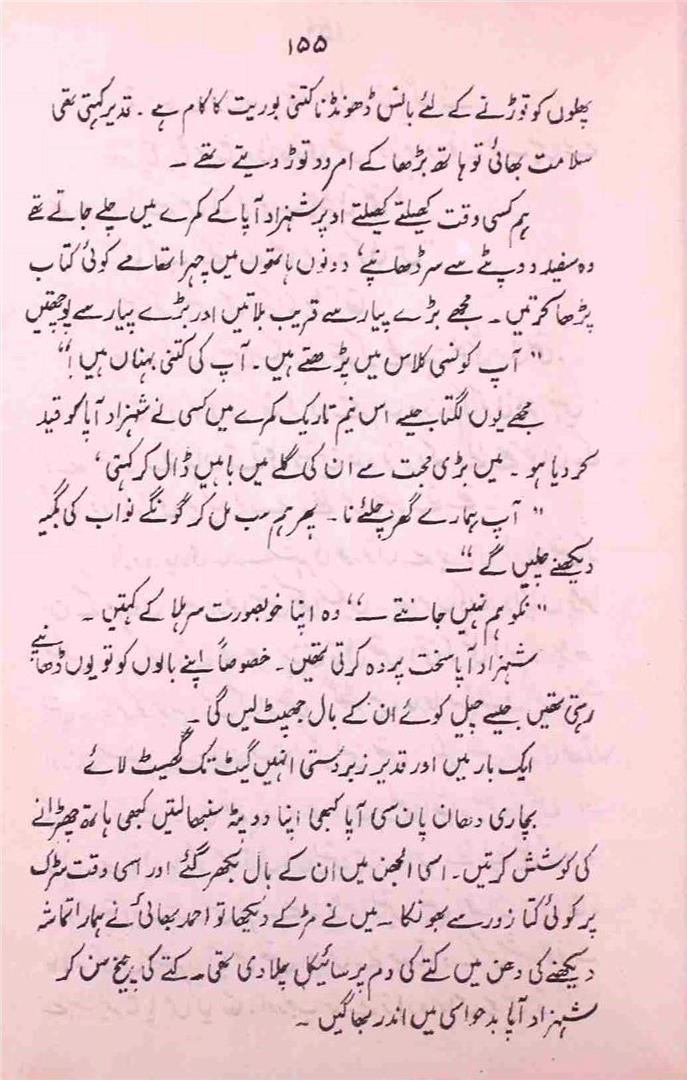 ۱۵۵
پھلوں کو توڑنے کے لئے بانس ڈھونڈنا کتنی بوریت کا کام ہے ۔ قدیر کہتی تھی
سلامت بھائی تو ہاتھ بڑھا کے امرود توڑ دیتے تھے ۔
ہم کسی وقت کھیلتے کھیلتے اوپر شہزاد آپا کے کمرے میں چلے جاتے تھے
وہ سفید دوپٹے سے سر ڈھانپے، دونوں ہاتھوں میں چہرا تھامے کوئی کتاب
پڑھا کرتیں ۔ مجھے بڑے پیار سے قریب بلاتیں اور بڑے پیار سے پوچھتیں
" آپ کونسی کلاس میں پڑھتے ہیں ۔ آپ کی کتنی بہناں ہیں !"
مجھے یوں لگتا جیسے اس نیم تاریک کمرے میں کسی نے شہزاد آپا کو قید
کر دیا ہو ۔ میں بڑی محبت سے ان کی گلے میں باہیں ڈال کر کہتی،
" آپ ہمارے گھر چلئے نا ۔ پھر ہم سب مل کر گونگے نواب کی بگھیہ
دیکھنے چلیں گے "۔
" نکو ہم نہیں جانتے ۔" وہ اپنا خوبصورت سر ہلا کے کہتیں ۔
شہزاد آپا سخت پردہ کرتی تھیں ۔ خصوصاً اپنے بالوں کو تو یوں ڈھانپے
رہتی تھیں جیسے چیل کوئے ان کے بال جھپٹ لیں گی ۔
ایک بار میں اور قدیر زبردستی انہیں گیٹ تک گھسیٹ لائے
بچاری دھان پان سی آپا کبھی اپنا دوپٹہ سنبھالتیں کبھی ہاتھ چھڑانے
کی کوشش کرتیں ۔ اسی الجھن میں ان کے بال بکھر گئے اور اسی وقت سڑک
پر کوئی کتا زور سے بھونکا ۔ میں نے مڑ کے دیکھا تو احمد بھائی نے ہمارا تماشہ
دیکھنے کی دھن میں کتے کی دم پر سائیکل چلا دی تھی ۔ کتے کی چیخ سن کر
شہزاد آپا بدحواسی میں اندر بھاگیں ۔